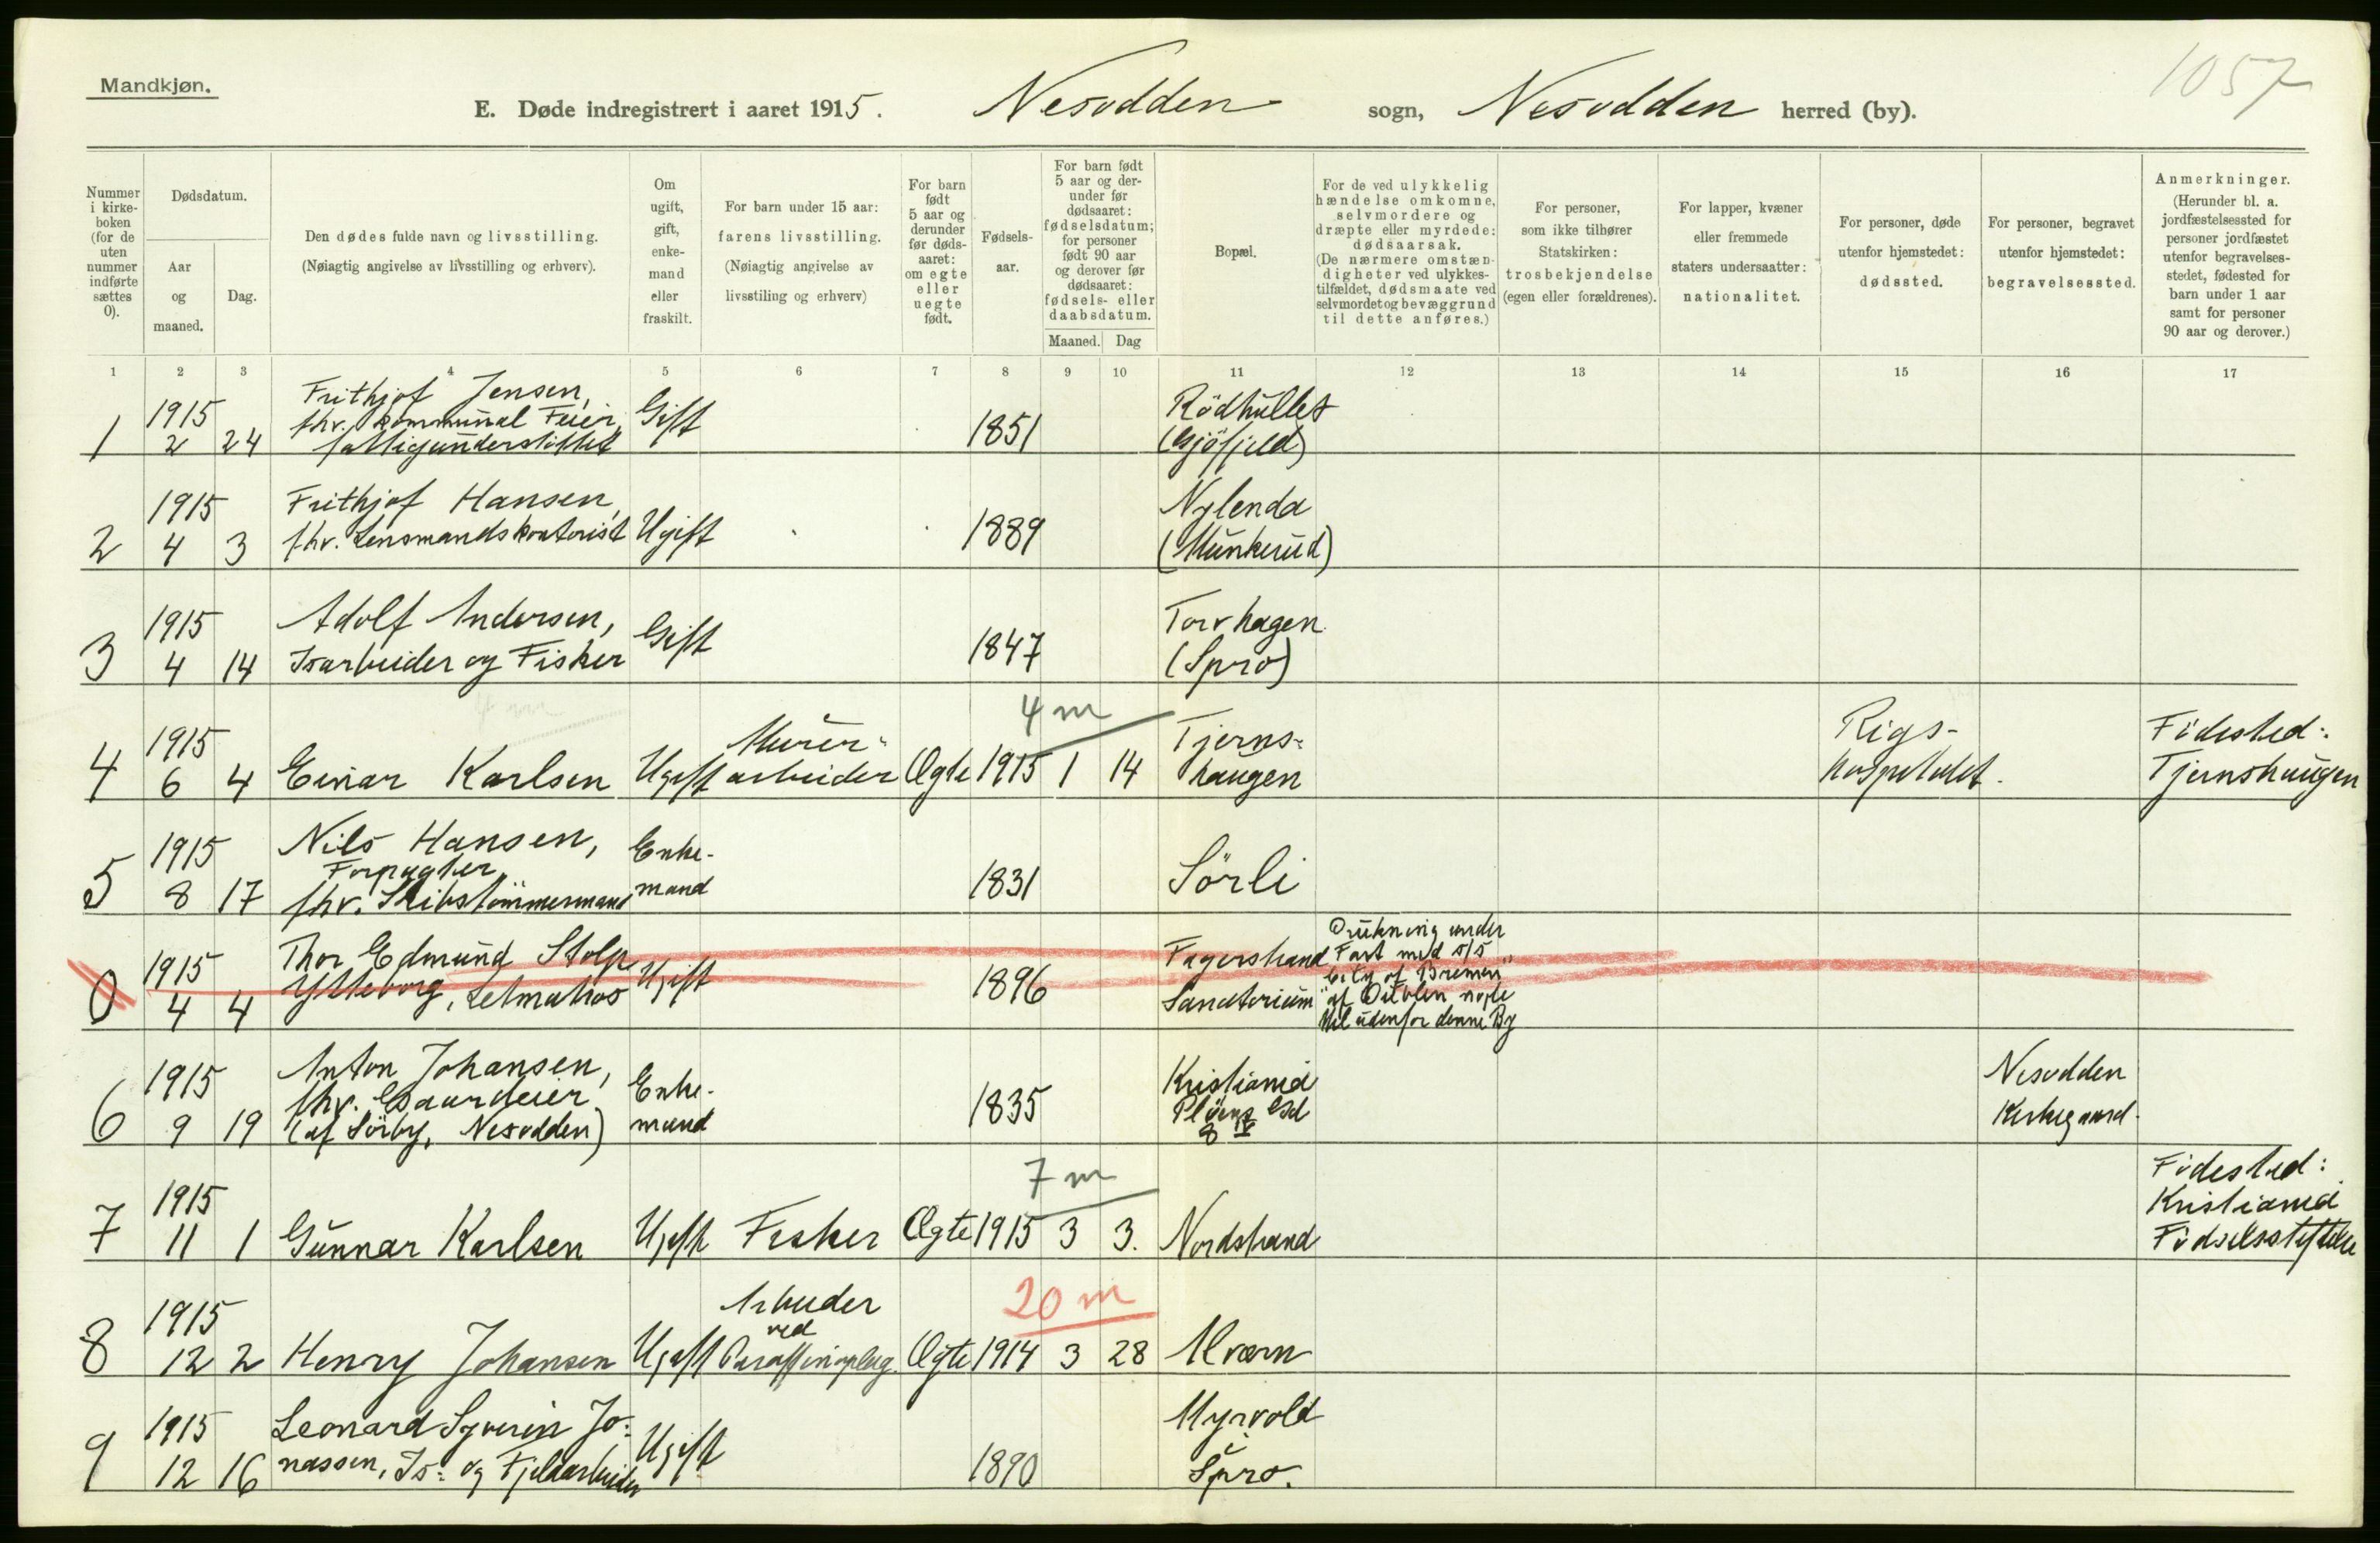 Mandkjøn.
1057
E. Døde indregistrert i aaret 1915. Nesodden sogn, Nesodden herred (by).
Nummer i kirke-boken (for de uten nummer indførte sættes 0).
Dødsdatum.
Aar og maaned.
Dag.
Den dødes fulde navn og livsstilling.
(Nøiagtig angivelse av livsstilling og erhverv).
Om ugift, gift, enke-mand eller fraskilt.
For barn under 15 aar: farens livsstilling. (Nøiagtig angivelse av livsstiling og erhverv)
For barn født 5 aar og derunder før døds-aaret: om egte eller uegte født.
Fødsels-aar.
For barn født 5 aar og der-under før dødsaaret: fødselsdatum; for personer født 90 aar og derover før dødsaaret: fødsels- eller daabsdatum.
Maaned. Dag
Bopæl.
For de ved ulykkelig hændelse omkomne, selvmordere og dræpte eller myrdede: dødsaarsak. (De nærmere omstæn-digheter ved ulykkes-tilfældet, dødsmaate ved selvmordet og bevæggrund til dette anføres.)
For personer, som ikke tilhører Statskirken: trosbekjendelse (egen eller forældrenes).
For lapper, kvæner eller fremmede staters undersaatter: nationalitet.
For personer, døde utenfor hjemstedet: dødssted.
For personer, begravet utenfor hjemstedet: begravelsessted.
Anmerkninger. (Herunder bl. a. jordfæstelsessted for personer jordfæstet utenfor begravelses-stedet, fødested for barn under 1 aar samt for personer 90 aar og derover.)
1 2 3 4 5 6 7 8 9 10 11 12 13 14 15 16 17
1 1915 2 24 Frithjof Jensen, fhv. kommunal Feier, fattigunderstöttet Gift 1851 Rödhullet (Gjöfjeld)
2 1915 4 3 Frithjof Hansen, fhv. Lensmandskontorist Ugift 1889 Nylenda (Munkerud)
3 1915 4 14 Adolf Andersen, Isarbeider og Fisker Gift 1847 Torvhagen (Spro)
4 m
4 1915 6 4 Einar Karlsen Ugift Murer-arbeider Ægte 1915 1 14 Tjerns-haugen Rigs-hospitalet. Födested: Tjernshaugen
5 1915 8 17 Nils Hansen, Forpagter, fhv. Skibstömmermand Enke-mand 1831 Sörli
0 1915 4 4 Thor Edmund Stolp Ytteborg, Letmatros Ugift 1896 Fagerstrand Sanatorium Drukning under Fart med s/s "City of Bremen" af Dublin nogle Mil udenfor denne By
6 1915 9 19 Anton Johansen, fhv. Gaardeier (af Sörby, Nesodden) Enke-mand 1835 Kristiania Plöens Gd 8 V Nesodden Kirkegaard.
7 m
7 1915 11 1 Gunnar Karlsen Ugift Fisker Ægte 1915 3 3. Nordstrand Födested: Kristiania Födselsstiftelse
20 m
8 1915 12 2 Henry Johansen Ugift Arbeider ved Paraffinoplag. Ægte 1914 3 28 Alværn
9 1915 12 16 Leonard Syverin Jo-nassen, Is- og Fjeldarbeider Ugift 1890 Myrvold Spro.